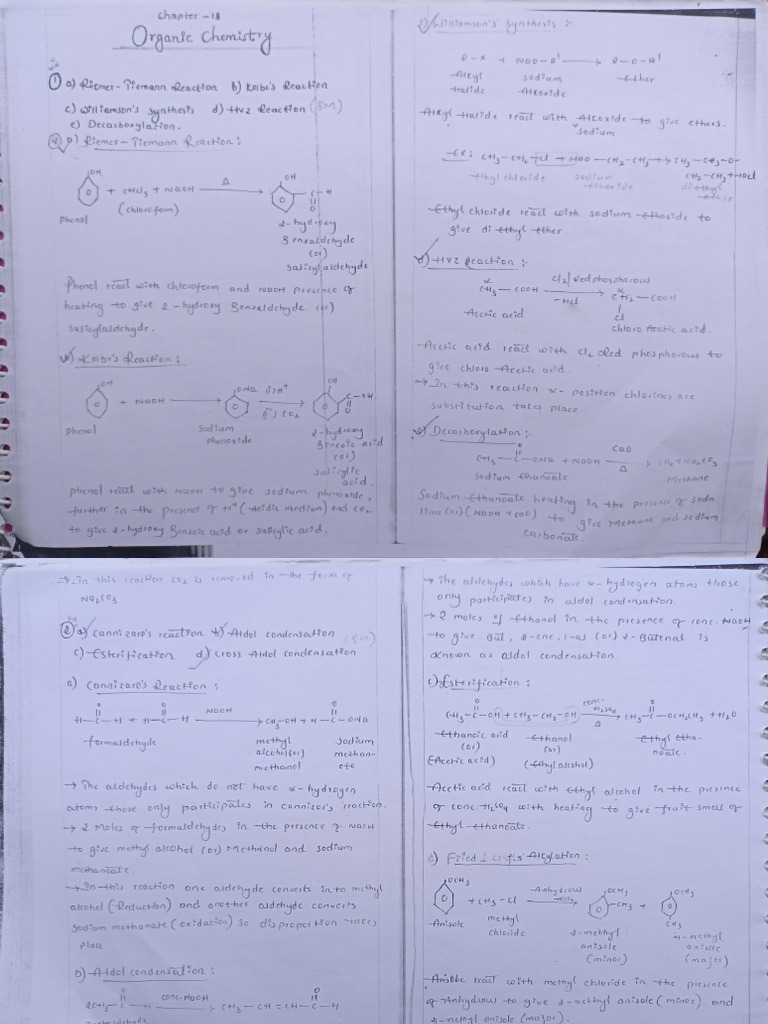 Chapter - 18
Organic Chemistry
① a) Riemer - Tiemann Reaction b) Kolbe's Reaction
c) Williamson's synthesis d) HVZ Reaction (8M)
e) Decarboxylation.
a) Riemer - Tiemann Reaction :
OH
+ CHCl3 + NaOH Δ OH C - H
(chloroform) O
Phenol
2-hydroxy
Benzaldehyde
(or)
Salicylaldehyde
Phenol react with chloroform and NaOH presence of
heating to give 2-hydroxy Benzaldehyde (or)
Salicylaldehyde.
b) Kolbe's Reaction :
OH + NaOH → ONa i) H+ ii) CO2 OH C - OH O
Phenol
Sodium
Phenoxide
2-hydroxy
Benzoic acid
(or)
salicylic
acid.
phenol react with NaOH to give sodium phenoxide,
further in the presence of H+ (acidic medium) and CO2
to give 2-hydroxy Benzoic acid or salicylic acid.
c) Williamson's Synthesis :
R-X + NaO-R' → R-O-R'
Alkyl sodium Ether
Halide Alkoxide
Alkyl Halide react with Alkoxide to give ethers.
sodium
Ex: CH3-CH2-Cl + NaO-CH2-CH3 → CH3-CH2-O-
CH2-CH3 + NaCl
Ethyl chloride sodium diethyl
Ethoxide Ether
Ethyl chloride react with sodium Ethoxide to
give di ethyl ether.
d) HVZ Reaction :
α CH3-COOH Cl2/Red phosphorous -HCl α CH2-COOH
Cl
Acetic acid chloro Acetic acid.
Acetic acid react with Cl2 Red phosphorous to
give chloro Acetic acid.
→ In this reaction α-position chlorines are
substitution takes place
e) Decarboxylation :
O
CH3-C-ONa + NaOH CaO Δ → CH4+Na2CO3
sodium Ethanoate Methane
Sodium Ethanoate heating in the presence of soda
lime (or) (NaOH + CaO) to give Methane and sodium
carbonate.
→ In this reaction CO2 is removed in the form of
Na2CO3
② a) Cannizaro's reaction b) Aldol condensation (8M)
c) Esterification d) Cross Aldol condensation
a) Cannizaro's Reaction :
O O O
H-C-H + H-C-H NaOH → CH3-OH + H-C-ONa
formaldehyde methyl Sodium
alcohol(or) methan-
methanol ate
→ The aldehydes which do not have α-hydrogen
atoms those only participates in cannizor's reaction.
→ 2 Moles of formaldehydes in the presence of NaOH
to give methyl alcohol (or) Methanol and sodium
methanoate.
→ In this reaction one aldehyde converts in to methyl
alcohol (Reduction) and another aldehyde converts
sodium methanate (oxidation) so disproportion takes
place
b) Aldol condensation :
O O
2CH3-C-H conc. NaOH → CH3-CH=CH-C-H
→ The aldehydes which have α-hydrogen atoms those
only participates in aldol condensation.
→ 2 moles of Ethanal in the presence of conc. NaOH
to give But, 2-ene, 1-al (or) 2-Butenal is
known as aldol condensation.
c) Esterification :
O O
CH3-C-OH + CH3-CH2-OH conc. H2SO4 Δ → CH3-C-OCH2CH3 + H2O
Ethanoic acid Ethanol Ethyl Etha-
(or) (or) noate.
(Acetic acid) (Ethyl alcohol)
Acetic acid react with Ethyl alcohol in the presence
of conc. H2SO4 with heating to give fruit smell of
Ethyl ethanoate.
Friedel crafts Alkylation :
OCH3 OCH3 OCH3
+ CH3-Cl Anhydrous → CH3 +
CH3
Anisole methyl
chloride
2-methyl 4-methyl
anisole anisole
(minor) (major)
Anisole react with methyl chloride in the presence
of Anhydrous to give 2-methyl anisole (minor) and
4-methyl anisole (major).